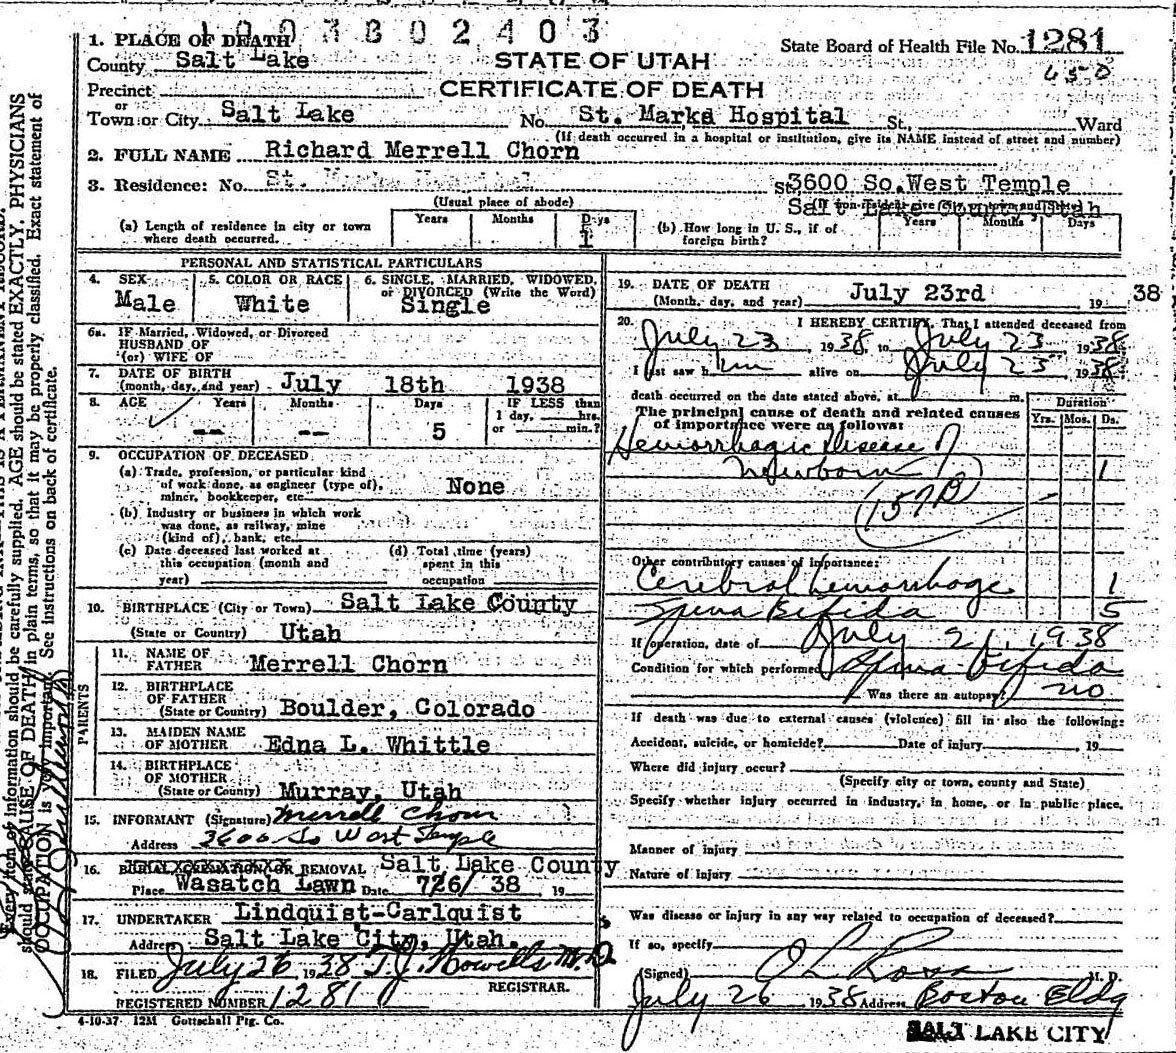 1003802403
1. PLACE OF DEATH
County Salt Lake
STATE OF UTAH
CERTIFICATE OF DEATH
State Board of Health File No. 1281
450
Precinct
or
Town or City Salt Lake No. St. Marks Hospital St. Ward
(If death occurred in a hospital or institution, give its NAME instead of street and number)
2. FULL NAME Richard Merrell Chorn
3. Residence: No. St. Marks Hospital St. 3600 So. West Temple
(Usual place of abode) Salt Lake County Utah
(If non-resident give city or town and State)
(a) Length of residence in city or town where death occurred. Years Months Days 1
(b) How long in U. S., if of foreign birth? Years Months Days
PERSONAL AND STATISTICAL PARTICULARS
4. SEX Male
5. COLOR OR RACE White
6. SINGLE, MARRIED, WIDOWED, or DIVORCED (Write the Word) Single
6a. IF Married, Widowed, or Divorced
HUSBAND OF
(or) WIFE OF
7. DATE OF BIRTH
(month, day, and year) July 18th 1938
8. AGE Years -- Months -- Days 5 IF LESS than 1 day, hrs. or min.?
9. OCCUPATION OF DECEASED
(a) Trade, profession, or particular kind
of work done, as engineer (type of),
miner, bookkeeper, etc. None
(b) Industry or business in which work
was done, as railway, mine
(kind of), bank, etc.
(c) Date deceased last worked at this occupation (month and year)
(d) Total time (years) spent in this occupation
10. BIRTHPLACE (City or Town) Salt Lake County
(State or Country) Utah
PARENTS
11. NAME OF
FATHER Merrell Chorn
12. BIRTHPLACE
OF FATHER
(State or Country) Boulder, Colorado
13. MAIDEN NAME
OF MOTHER Edna L. Whittle
14. BIRTHPLACE
OF MOTHER
(State or County) Murray, Utah
15. INFORMANT (Signature) Merrell Chorn
Address 3600 So West Temple
16. BURIAL, CREMATION OR REMOVAL Salt Lake County
Place Wasatch Lawn Date 7/26/ 38 19
17. UNDERTAKER Lindquist-Carlquist
Address Salt Lake City, Utah.
18. FILED July 26 1938 T.J. Howells M.D.
REGISTRAR.
REGISTERED NUMBER 1281
4-10-37 12M Gottschall Ptg. Co.
19. DATE OF DEATH
(Month, day, and year) July 23rd 19 38
20. I HEREBY CERTIFY, That I attended deceased from
July 23, 1938, to July 23 1938
I last saw him alive on July 23 1938
death occurred on the date stated above, at m.
The principal cause of death and related causes
of importance were as follows:
Duration
Yrs. Mos. Ds.
Hemorrhagic Disease of
Newborn 1
(157B)
Other contributory causes of importance:
Cerebral hemorrhage 1
Spina Bifida 5
If operation, date of July 21, 1938
Condition for which performed Spina Bifida
Was there an autopsy? no
If death was due to external causes (violence) fill in also the following:
Accident, suicide, or homicide? Date of injury , 19
Where did injury occur?
(Specify city or town, county and State)
Specify whether injury occurred in industry, in home, or in public place.
Manner of injury
Nature of injury
Was disease or injury in any way related to occupation of deceased?
If so, specify
(Signed) O L Ross M. D.
July 26, 1938 Address Boston Bldg
SALT LAKE CITY
Every item of information should be carefully supplied. AGE should be stated EXACTLY. PHYSICIANS
should state CAUSE OF DEATH in plain terms, so that it may be properly classified. Exact statement of
OCCUPATION is very important. See instructions on back of certificate.